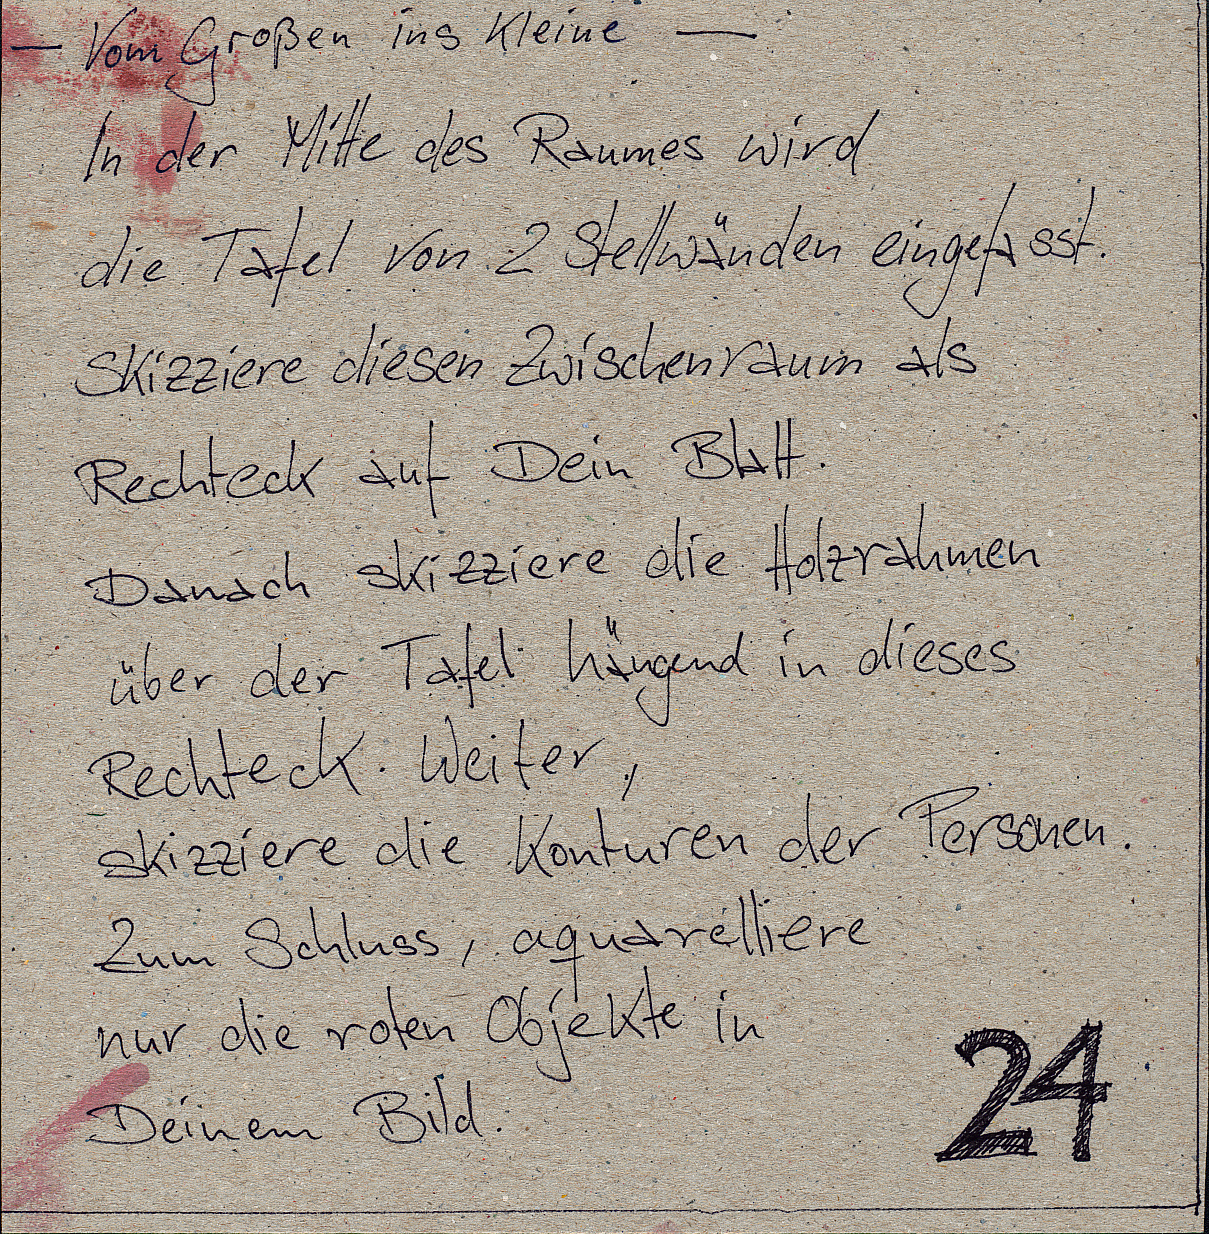 — Vom Großen ins Kleine —
In der Mitte des Raumes wird
die Tafel von 2 Stellwänden eingefasst.
Skizziere diesen Zwischenraum als
Rechteck auf Dein Blatt.
Danach skizziere die Holzrahmen
über der Tafel hängend in dieses
Rechteck. Weiter,
skizziere die Konturen der Personen.
Zum Schluss, aquarelliere
nur die roten Objekte in
Deinem Bild.
24